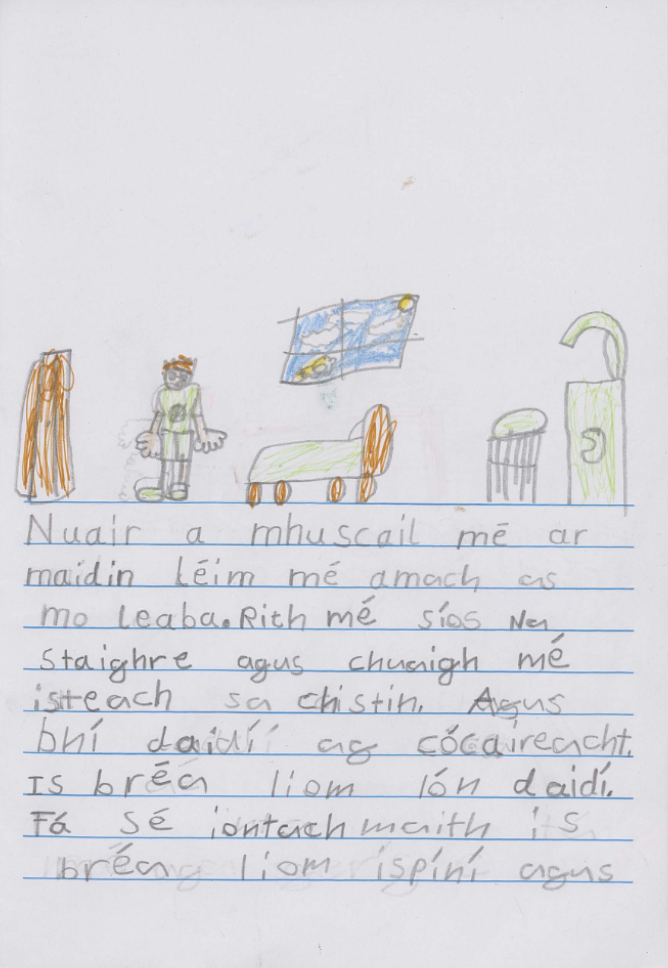 Nuair a mhuscail mé ar
maidin léim mé amach as
mo leaba. Rith mé síos Na
staighre agus chuaigh mé
isteach sa chistin. Agus
bhí daidí ag cócaireacht.
Is bréa liom lón daidí.
Tá sé iontach maith is
bréa liom ispíní agus